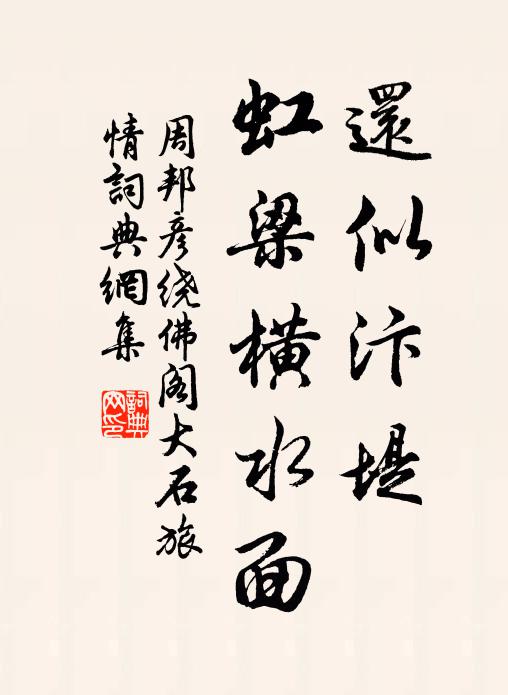 還似汴堤
虹梁橫水面
周邦彦绕佛阁大石旅
情詞典網集
詞典
网印